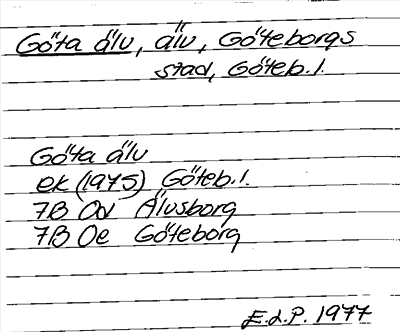 Göta älv, älv, Göteborgs
stad, Göteb. l.
Göta älv
ek (1975) Göteb. l.
7B 0d Älvsborg
7B 0e Göteborg
E.d.P. 1977